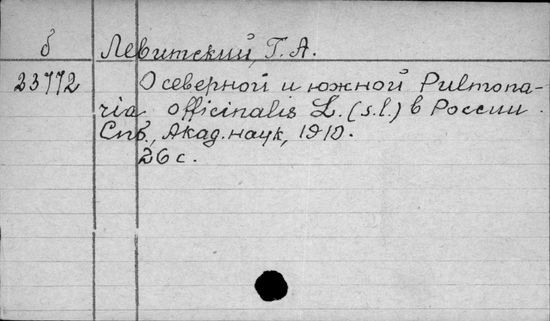 б Левитский, Г. А.
23772 О северной и южной Pulmona-
ria officinalis L. (s.l.) в России.
Спб., Акад. наук, 1910.
26 с.